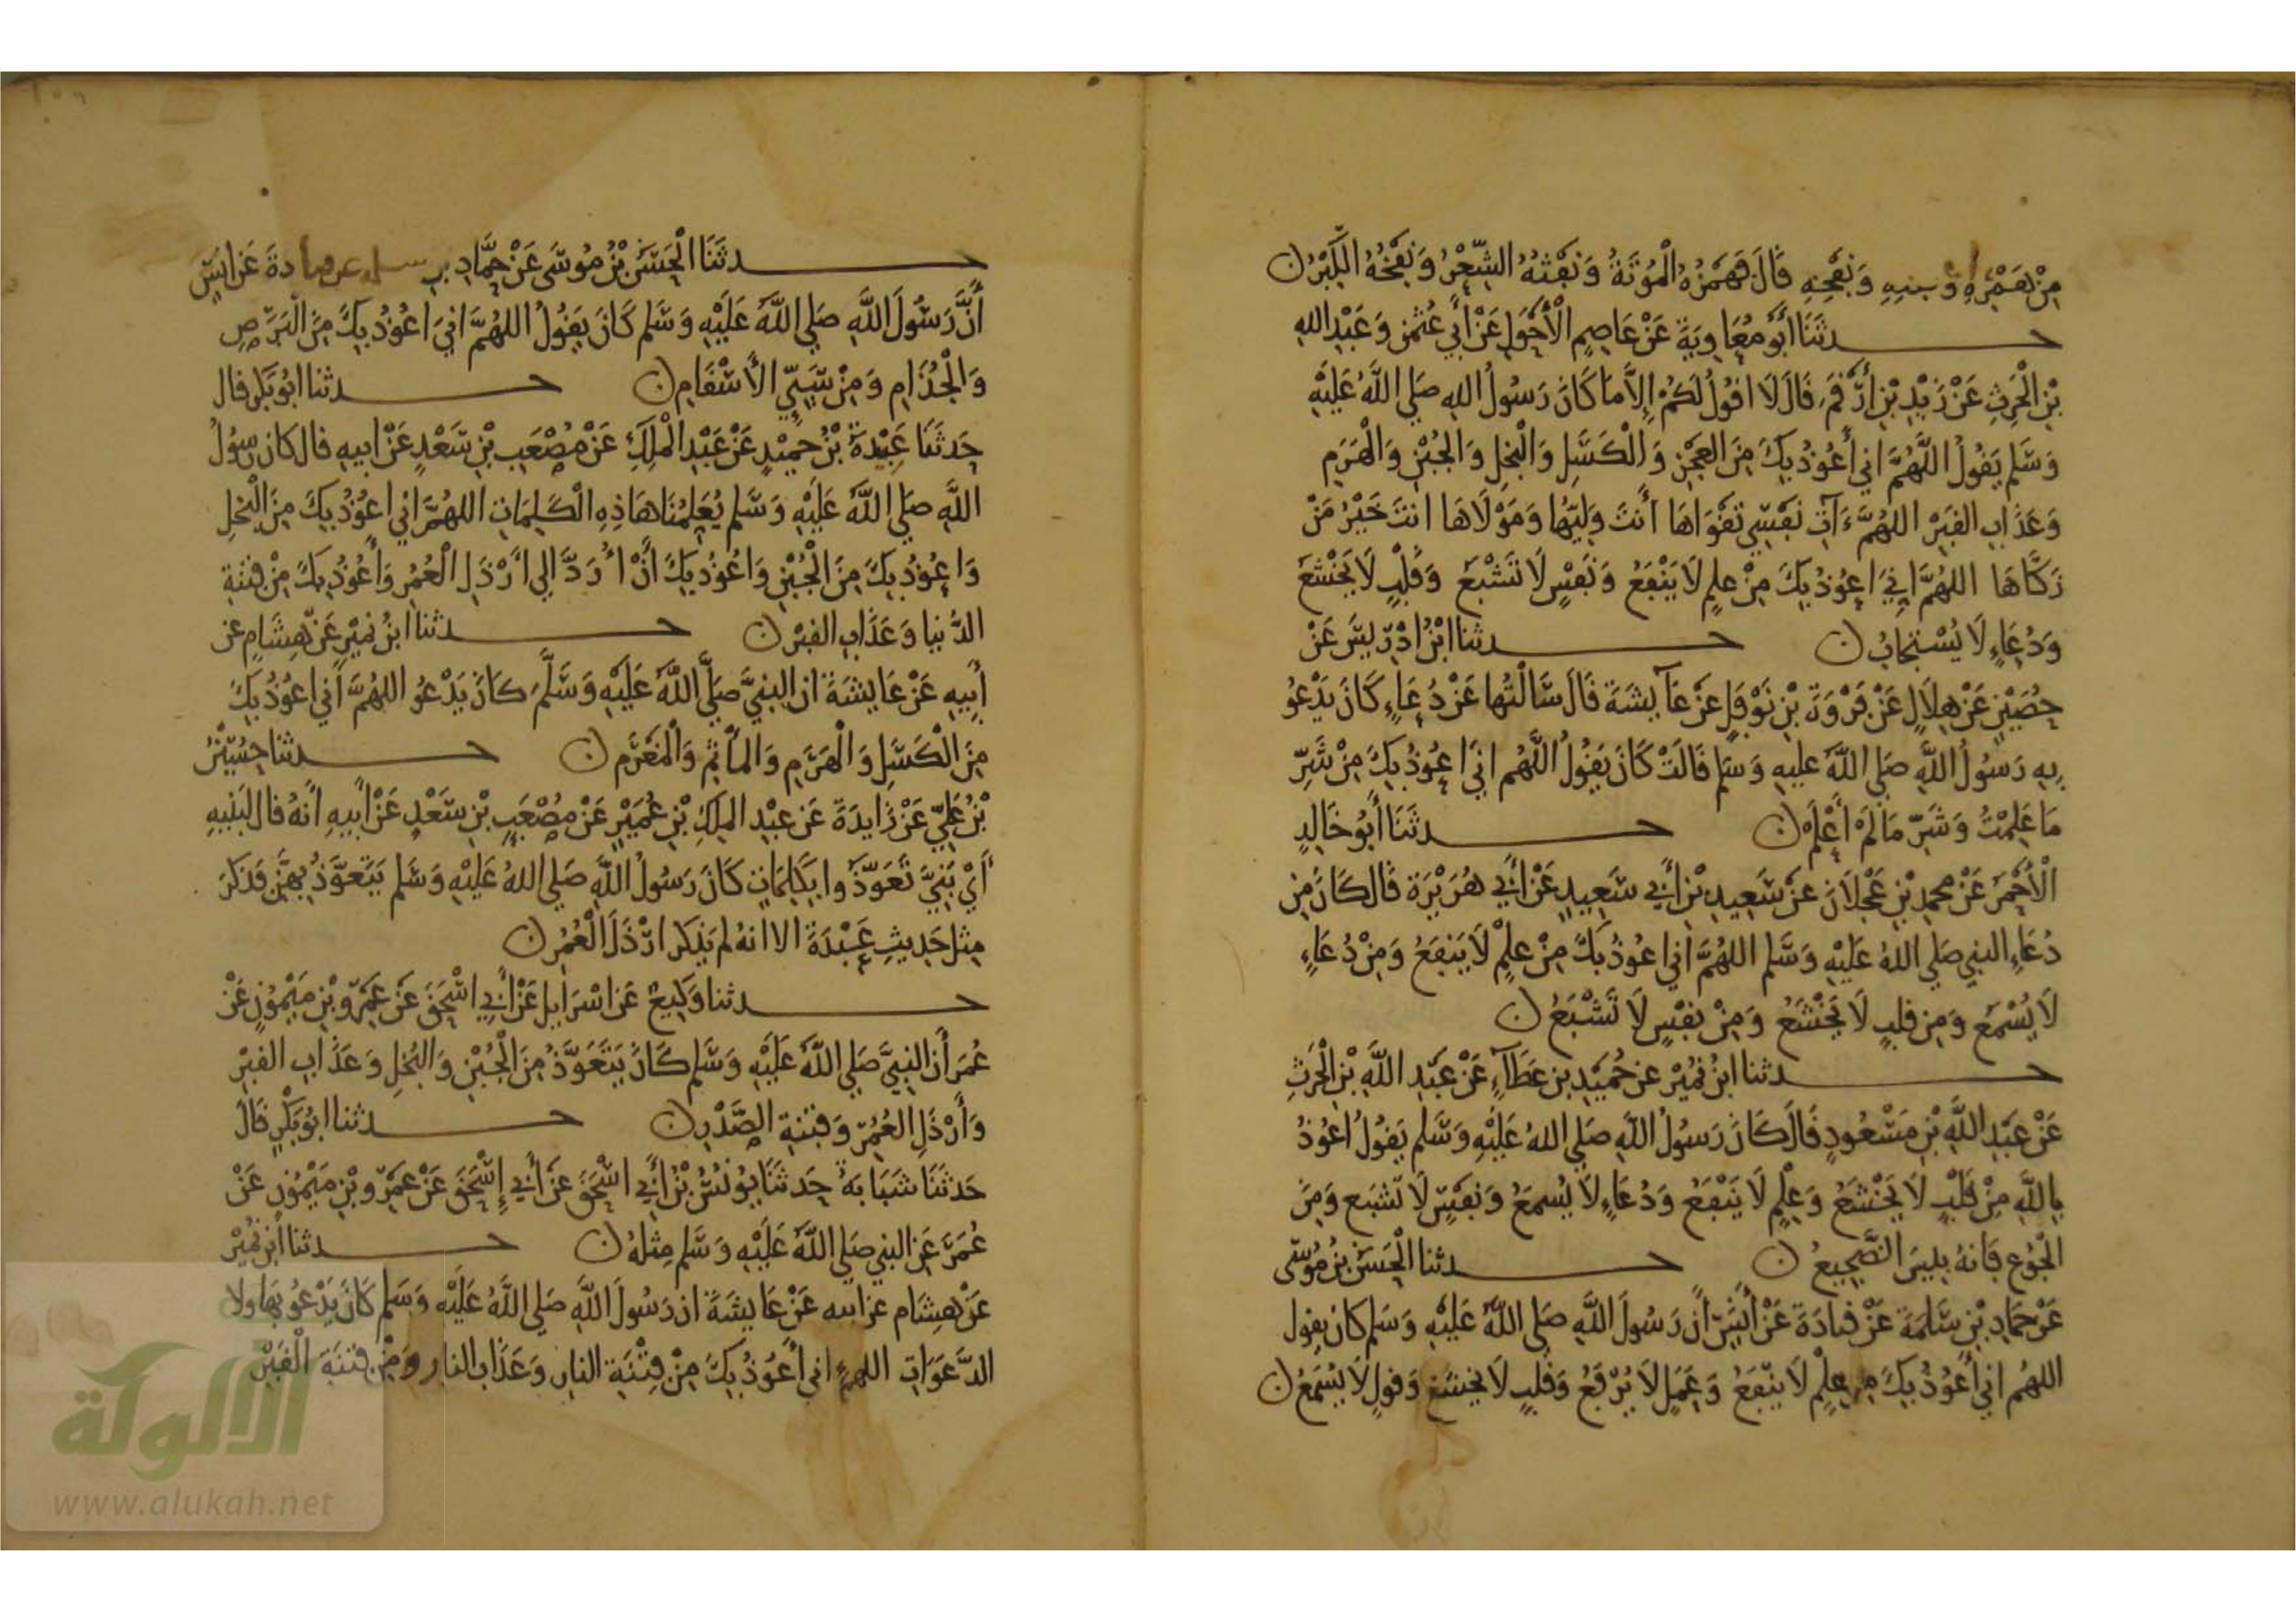 مِنْ هَمْزِهِ وَنفثِهِ وَنَفْخِهِ قَالَ فَهَمْزُهُ الْمُوتَةُ وَنَفْثُهُ الشِّعْرُ وَنَفْخُهُ الْكِبْرُ ن
حدثَنَا أَبُو مُعَاوِيَةَ عَنْ عَاصِمٍ الْأَحْوَلِ عَنْ أَبِي عُثمٰنَ وَعَبْدِ اللهِ
بْنِ الْحٰرِثِ عَنْ زَيْدِ بْنِ أَرْقَمَ قَالَ لَا اقُولُ لَكُمْ إِلَّا مَا كَانَ رَسُولُ اللهِ صَلي اللَّهُ عَلَيْهِ
وَسَلم يَقُولُ اللَّهُمَّ اني أَعُوذُ بِكَ مِنَ العَجْزِ وَالْكَسَلِ وَالْبُخلِ وَالجُبْنِ وَالْهَرَمِ
وَعَذَابِ القَبْرِ اللهُمَّ ءَاتِ نَفْسِي تَقْوَاهَا أَنتَ وَلِيّهَا وَمَوْلَاهَا انتَ خَيْرُ مَنْ
زَكَّاهَا اللهُمَّ إِنِيَ اعُوُذ بِكَ مِنْ علمٍ لَا يَنْفَعُ وَنَفْسٍ لَا تَشْبَعُ وَقَلْبٍ لَا يَخْشَعُ
وَدُعَاءٍ لَا يُسْتجَابُ ن حدثنا ابْنُ ادْرِيسَ عَنْ
حُصَيْنٍ عَنْ هِلَالٍ عَنْ فَرْوَةَ بْنِ نَوْفَلٍ عَنْ عَآيِشَةَ قَالَ سَالْتُهَا عَنْ دُعَاءٍ كَانَ يَدْعُو
بِهِ رَسُولُ اللَّهِ صَلي اللَّهُ عليهِ وَسَلم قَالَتْ كَانَ يَقُولُ اللَّهُم انيَ اعُوذُ بِكَ مِنْ شَرِّ
مَا عَلِمْتُ وَشَرِّ مَا لَمْ أَعْلَمْ ن حدثَنَا أَبُو خَالِدٍ
الْأَحْمَرُ عَنْ محمدِ بْنِ عَجْلَانَ عَنْ سَعِيدِ بْنِ أَبي سَعِيدٍ عَنْ أَبي هُرَيْرَةَ قَال كَانَ مِن
دُعَاءِ النبي صَلي اللهُ عَلَيْهِ وَسَلم اللهُمَّ اني اعُوذُ بِكَ مِنْ علمٍ لَا يَنفَعُ وَمِنْ دُعَاءٍ
لَا يُسْمَعُ وَمِن قلبٍ لَا يَخْشَعُ وَمِنْ نفْسٍ لَا تَشْبَعُ ن
حدثنا ابنُ نُمَيْرٍ عن حُمَيْدِ بن عَطَآءٍ عَنْ عَبْدِ اللَّهِ بْنِ الْحَرثِ
عَنْ عَبْدِ اللَّهِ بْنِ مَسْعُودٍ قَالَ كَانَ رَسُولُ اللَّهِ صَلي اللهُ عَلَيْهِ وَسَلم يَقُولُ اعُوذُ
بِاللَّهِ مِنْ قَلْبٍ لَا يَخْشَعُ وَعِلْمٍ لَا يَنْفَعُ وَدُعَاءٍ لَا يُسمعُ وَنفْسٍ لَا تَشبَع وَمِنَ
الْجُوع فَانهُ بيسَ الضَّجِيعُ ن حدثنا الْحَسَنُ بْنُ مُوسَى
عَنْ حَمَادِ بْنِ سَلَمَةَ عَنْ قتادَةَ عَنْ أَنَسٍ أَنَّ رَسُولَ اللَّهِ صَلي اللهُ عَلَيْهِ وَسَلم كانَ يقول
اللهُم اني أَعُوذُ بِكَ من عِلْمٍ لَا يَنْفَعُ وَعَمَلٍ لَا يُرْفَعُ وَقَلبٍ لَا يخشَعُ وَقولٍ لَا يُسْمَعُ ن
حدثَنَا الْحَسَنُ بْنُ مُوسَى عَنْ حَمَّادِ بن سلمه عن قتادةَ عَن انَسٍ
أَنَّ رَسُولَ اللَّهِ صَلي اللَّهُ عَلَيْهِ وَسَلم كَانَ يَقُولُ اللهُمَّ انيَ اعُوذُ بِكَ مِنَ الْبَرَصِ
وَالْجُذَامِ وَمِنْ سَيِّيِ الأَسْقَامِ ن حدثنا ابُو بَكْر قال
حَدثَنَا عَبِيْدَةُ بْنُ حُمَيْدٍ عَنْ عَبْدِ الْمَلِكِ عَنْ مُصْعَبِ بْنِ سَعْدٍ عَنْ ابيهِ قال كان رسُولُ
اللَّهِ صَلي اللَّهُ عَلَيْهِ وَسَلم يُعَلِمُنَا هَاذِهِ الْكَلِمَاتِ اللهُمَّ اني اعُوُذُ بِكَ مِنَ الْبُخلِ
وَاعُوذُ بِكَ مِنَ الْجُبْنِ وَاعُوذُ بِكَ أَنْ أُرَدَّ الي أَرْذَلِ الْعُمُرِ وَأَعُوذُ بِكَ مِنْ فِتْنَةِ
الدُّنيا وَعَذَابِ القبرْ ن حدثنا ابنُ نُمَيْرٍ عَنْ هِشَامٍ عَن
أَبِيهِ عَنْ عَايشَةَ ان النبيَّ صَلَّي اللَّهُ عَلَيْهِ وَسَلَّمَ كَانَ يَدْعُو اللهُمَّ اني اعُوذُ بِكَ
مِنَ الْكَسَلِ وَالْهَرَمِ وَالمَأْثَمِ وَالْمَغْرَمِ ن حدثنا حُسَيْنُ
بْنُ عَلِيٍّ عَنْ زَايدَةَ عَن عبْدِ الملِكِ بْنِ عُمَيْرٍ عَنْ مُصْعَبِ بْنِ سَعْدٍ عَنْ أَبيهِ أَنهُ قال لبَنِيهِ
أَيْ بَنِيَّ تَعَوَّذُوا بِكَلِمَاتٍ كَانَ رَسُولُ اللَّهِ صَلي اللهُ عَلَيْهِ وَسَلم يَتَعَوَّذُ بِهِنَّ فَذكَرَ
مِثل حَديثِ عَبِيْدَةَ الا انهُ لم يَذكر ارْذَلَ الْعُمُرِ ن
حدثنا وَكِيعٌ عَن اسْرَايِل عَنْ أَبي اسْحَقَ عَن عَمْرِو بْنِ مَيْمُونٍ عَنْ
عُمَرَ أَن النبيَّ صَلي اللَّهُ عَلَيْهِ وَسَلم كَانَ يَتَعَوَّذُ مِنَ الْجُبْنِ وَالبُخلِ وَعَذَابِ القبْرِ
وَأَرْذَلِ العُمُرِ وَفِتنةِ الصَّدْرِ ن حدثنا ابُو بَكْرٍ قَالَ
حَدثَنَا شَبَابَةُ حَدثَنَا يُونُسُ بْنُ أَبي اسْحَقَ عَن أَبي إِسْحَقَ عَنْ عَمْرِو بْنِ مَيْمُونٍ عَنْ
عُمَرَ عَنِ النبي صَلي اللَّهُ عَلَيْهِ وَسَلم مِثلهُ ن حدثنا ابْن نُمَيْرٍ
عَنْ هِشَام عن ابيه عَنْ عَايشَةَ ان رَسُولَ اللَّهِ صَلي اللَّهُ عَلَيْهِ وَسَلم كَانَ يَدْعُو بهاولا
الدَّعَوَاتِ اللهم اني أَعُوذُ بِكَ مِنْ فِتْنَةِ النارِ وَعَذَابِ النار وَمِنْ فِتنَةِ الْقَبْرِ
الألوكة
www.alukah.net